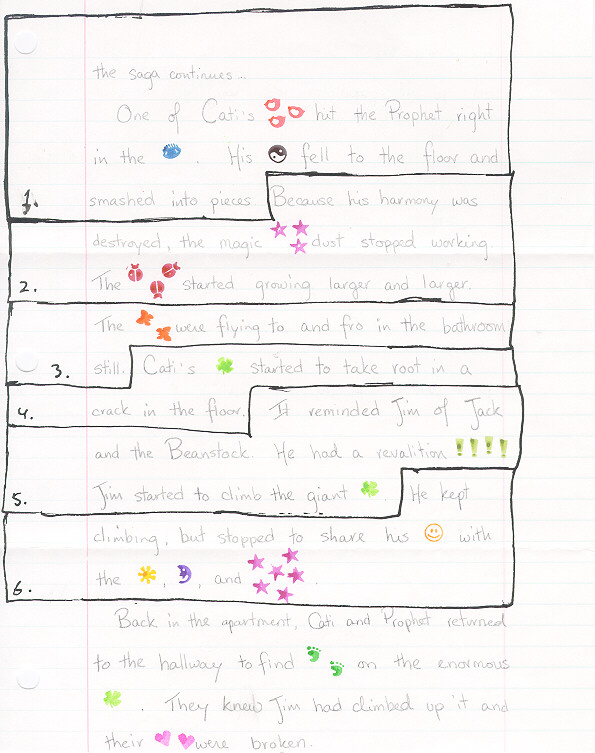 the saga continues...
One of Cati's hit the Prophet right
in the . His fell to the floor and
1. smashed into pieces. Because his harmony was
destroyed, the magic dust stopped working.
2. The started growing larger and larger.
The were flying to and fro in the bathroom
3. still. Cati's started to take root in a
4. crack in the floor. It reminded Jim of Jack
and the Beanstock. He had a revalition !!!!
5. Jim started to climb the giant . He kept
climbing, but stopped to share his with
6. the , , and .
Back in the apartment, Cati and Prophet returned
to the hallway to find on the enormous
. They knew Jim had climbed up it and
their were broken.